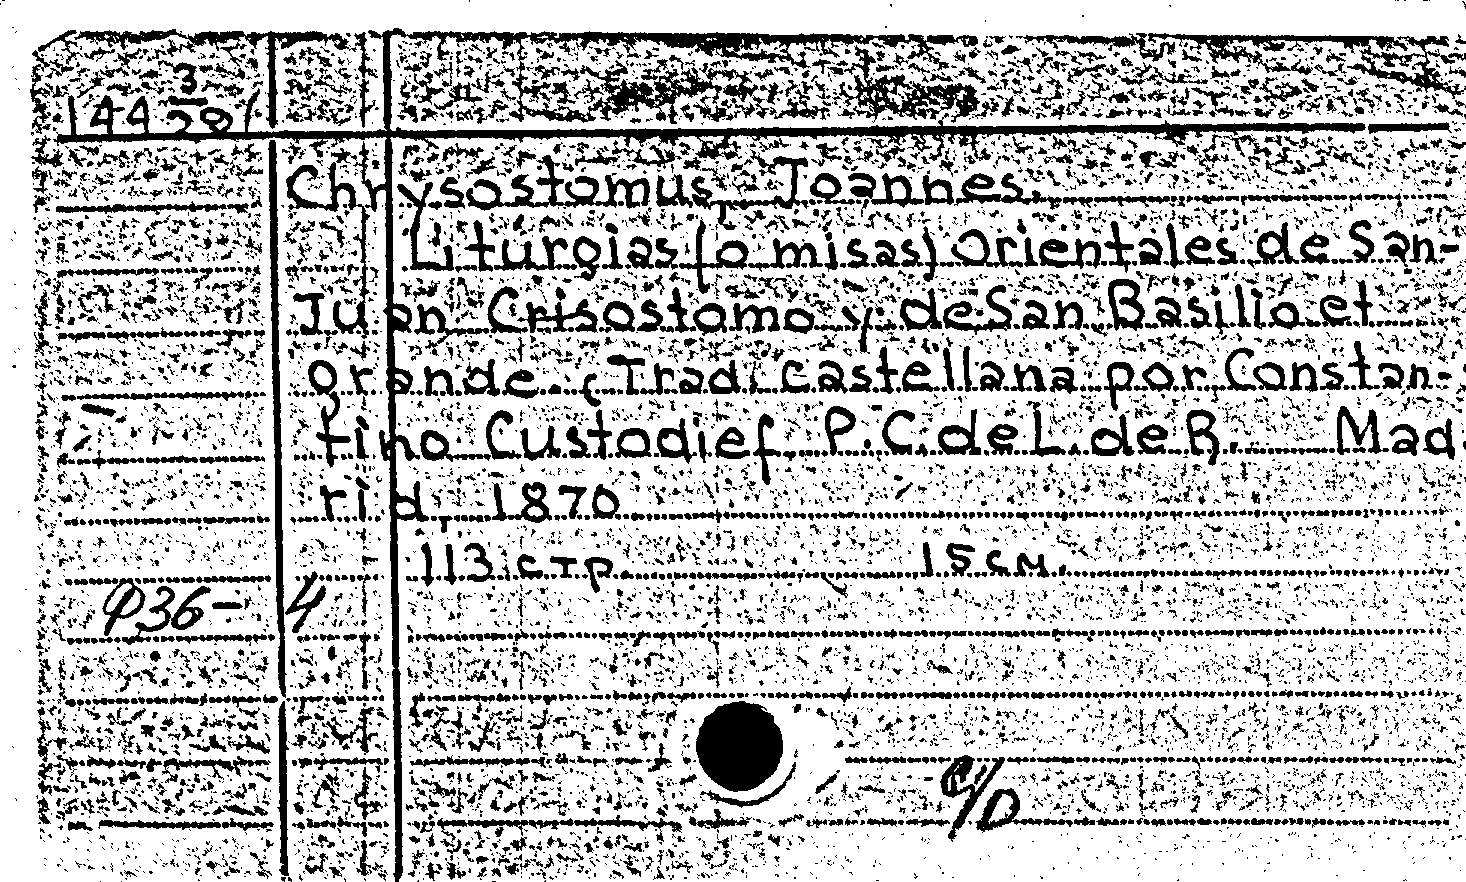 144 3/281
Chrysostomus, Joannes.
Liturgias (o misas) Orientales de San-
Juan Crisostomo y de San Basilio et
grande. (Trad. castellana por Constan-
tino Custodief. P.C. de L. de R. Mad
rid, 1870
113 стр. 15 см.
Ф36-4